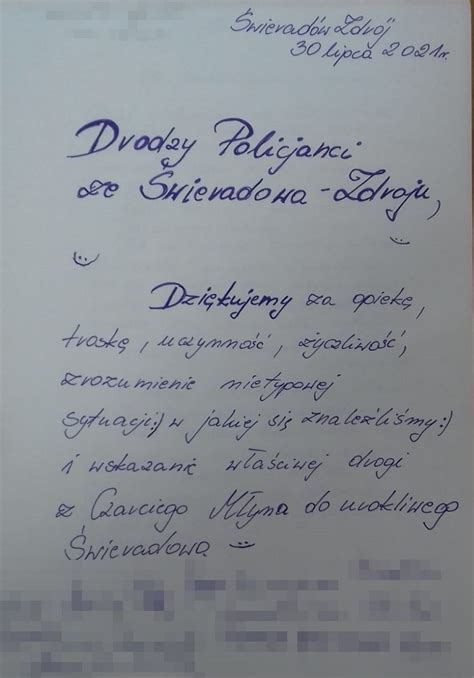 Świeradów Zdrój
30 lipca 2021r.
Drodzy Policjanci
ze Świeradowa-Zdroju,
Dziękujemy za opiekę,
troskę, uczynność, życzliwość,
zrozumienie nietypowej
sytuacji:) w jakiej się znaleźliśmy:)
i wskazanie właściwej drogi
z Czarciego Młyna do urokliwego
Świeradowa